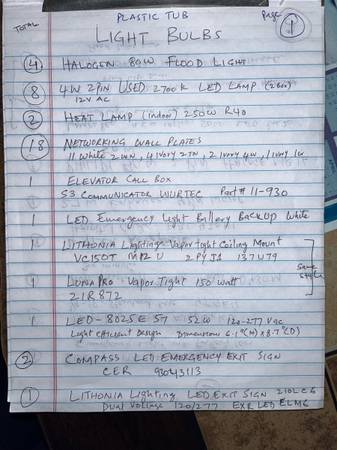 TOTAL PLASTIC TUB Page 1
LIGHT BULBS
4 HALOGEN 80W FLOOD LIGHT
8 4W 2PIN USED 2700K LED LAMP
12V AC
2 HEAT LAMP (indoor) 250W R40
18 NETWORKING WALL PLATES
11 White 2 4 Ivory 2 , 2 Ivory 4W, 1 Ivory 1W
1 ELEVATOR CALL BOX
S3 COMMUNICATOR WURTEC Part # 11-930
1 LED Emergency Light Battery BackUp White
1 LITHONIA Lighting - Vapor tight Ceiling Mount
VC150T M12 U 2PYJ1 137U79
same style
1 LUNAPRO - Vapor Tight 150 watt
21R872
1 LED-8025E57 52W 120-277 Vac
Light efficient Design Dimension 6.1"(H) x 8.7"(D)
2 COMPASS LED EMERGENCY EXIT SIGN
CER 93043113
1 LITHONIA Lighting LED EXIT SIGN 210LCG
Dual Voltage 120/277 EXR LED EL M6